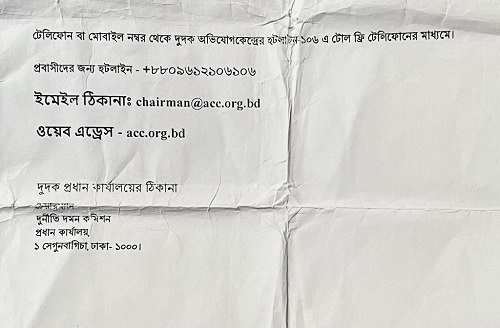 টেলিফোন বা মোবাইল নম্বর থেকে দুদক অভিযোগকেন্দ্রের হটলাইন-১০৬ এ টোল ফ্রি টেলিফোনের মাধ্যমে।
প্রবাসীদের জন্য হটলাইন - +৮৮০৯৬১২১০৬১০৬
ইমেইল ঠিকানাঃ chairman@acc.org.bd
ওয়েব এড্রেস - acc.org.bd
দুদক প্রধান কার্যালয়ের ঠিকানা
চেয়ারম্যান
দুর্নীতি দমন কমিশন
প্রধান কার্যালয়,
১ সেগুনবাগিচা, ঢাকা- ১০০০।